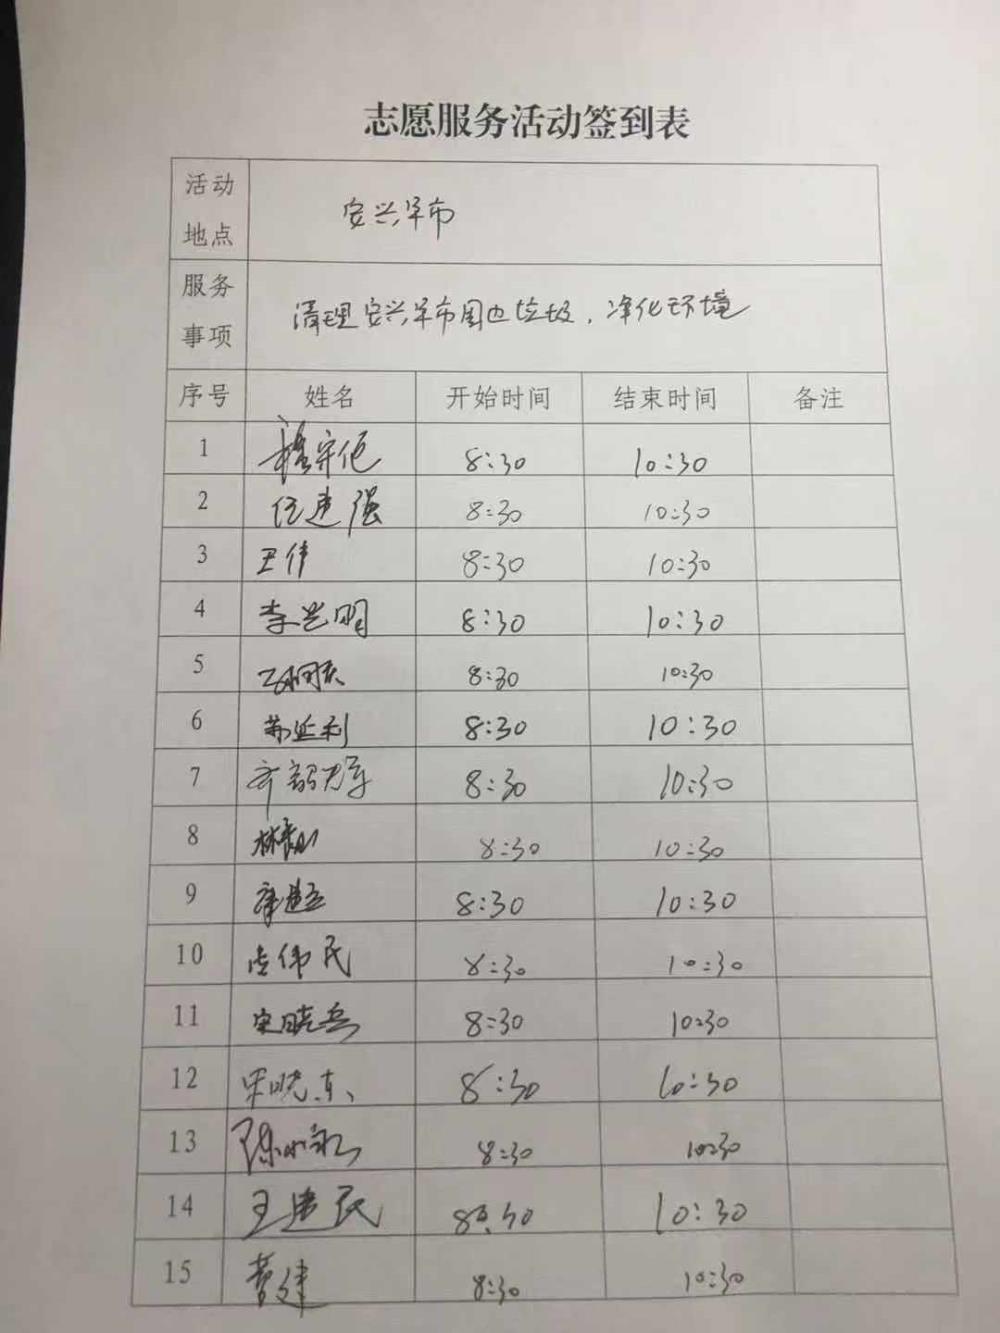 志愿服务活动签到表
活动地点 安兴早市
服务事项 清理安兴早市周边垃圾，净化环境
序号 姓名 开始时间 结束时间 备注
1 8:30 10:30
2 任建强 8:30 10:30
3 王伟 8:30 10:30
4 李兴明 8:30 10:30
5 8:30 10:30
6 苏延利 8:30 10:30
7 8:30 10:30
8 8:30 10:30
9 8:30 10:30
10 伟民 8:30 10:30
11 宋晓 8:30 10:30
12 宋晓东 8:30 10:30
13 陈 8:30 10:30
14 王建民 8:30 10:30
15 曹建 8:30 10:30